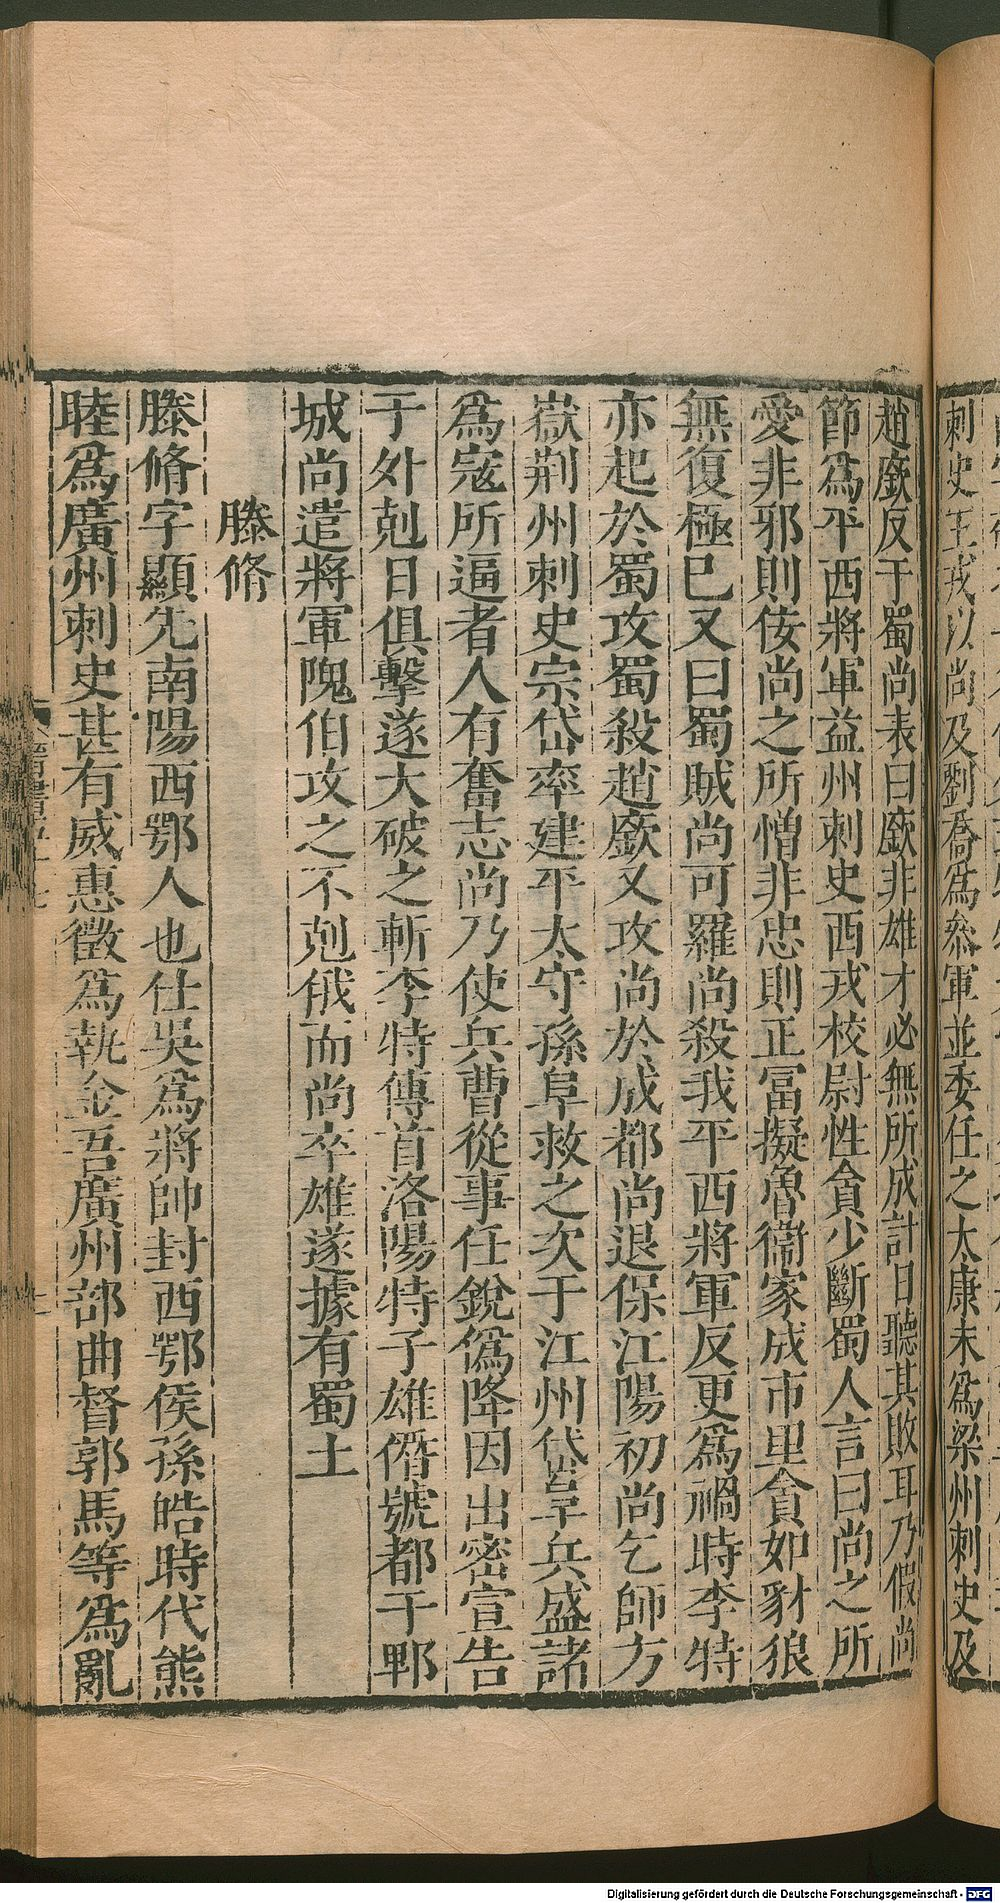 刺史王戎以尚及劉喬爲參軍並委任之太康末爲梁州刺史及
趙廞反于蜀尚表曰廞非雄才必無所成計日聽其敗耳乃假尚
節爲平西將軍益州刺史西戎校尉性貪少斷蜀人言曰尚之所
愛非邪則佞尚之所憎非忠則正冨擬魯衞家成市里貪如豺狼
無復極已又曰蜀賊尚可羅尚殺我平西將軍反更爲禍時李特
亦起於蜀攻蜀殺趙廞又攻尚於成都尚退保江陽初尚乞師方
嶽荆州刺史宗岱率建平太守孫阜救之次于江州岱阜兵盛諸
爲寇所逼者人有奮志尚乃使兵曹從事任銳僞降因出密宣告
于外剋日俱擊遂大破之斬李特傳首洛陽特子雄僭號都于郫
城尚遣將軍隗伯攻之不剋俄而尚卒雄遂據有蜀土
滕脩
滕脩字顯先南陽西鄂人也仕吳爲將帥封西鄂侯孫皓時代熊
睦爲廣州刺史甚有威惠徵爲執金吾廣州部曲督郭馬等爲亂
Digitalisierung gefördert durch die Deutsche Forschungsgemeinschaft - DFG